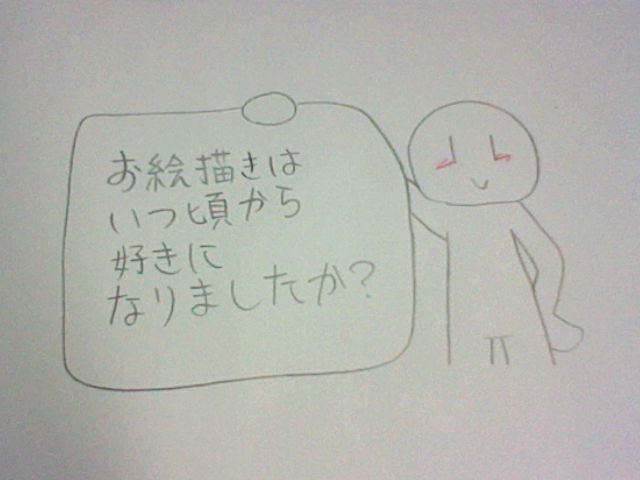 お絵描きは
いつ頃から
好きに
なりましたか?